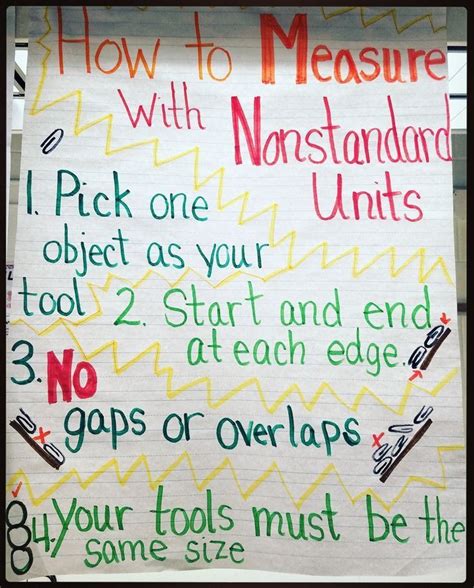 How to Measure
With Nonstandard
Units
1. Pick one
object as your
tool
2. Start and end
at each edge.
3. No
gaps or overlaps
4. Your tools must be the
same size